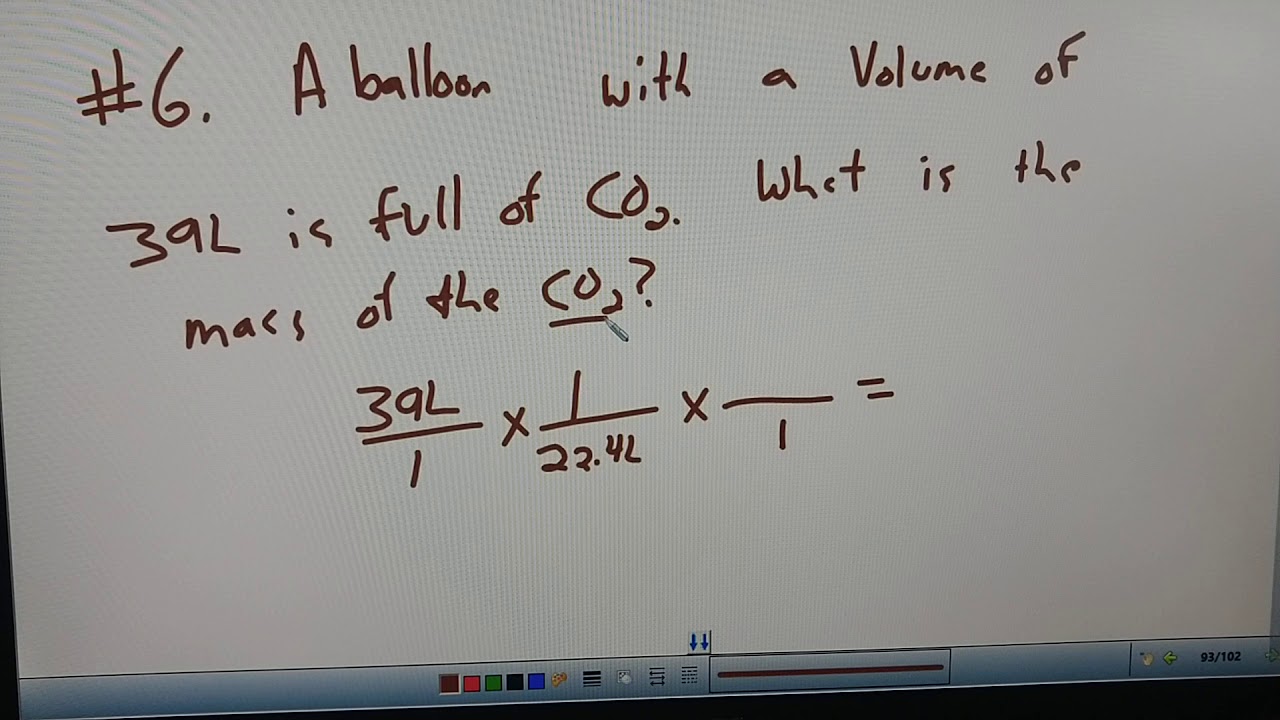 #6. A balloon with a Volume of
39L is full of CO₂. What is the
mass of the CO₂?
39L/1 x 1/22.4L x __/1 =
93/102